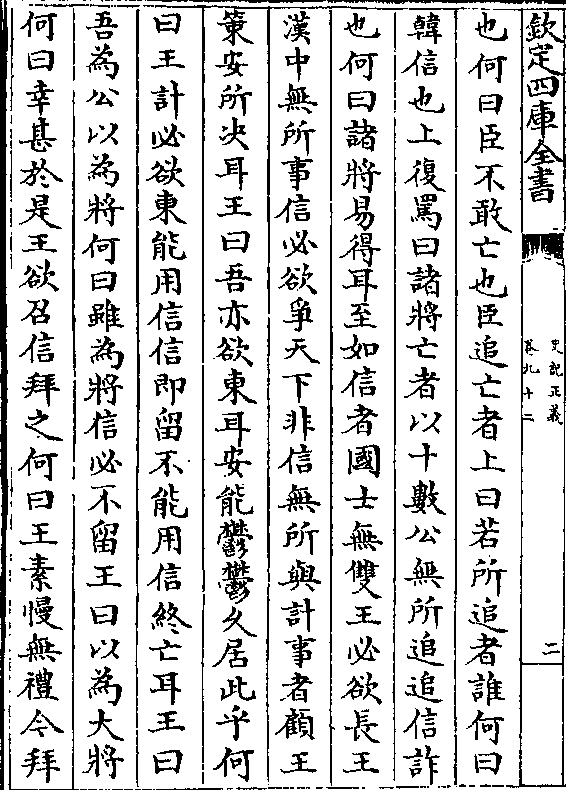 欽定四庫全書
史記正義
卷九十二
二
也何曰臣不敢亡也臣追亡者上曰若所追者誰何曰
韓信也上復罵曰諸將亡者以十數公無所追追信詐
也何曰諸將易得耳至如信者國士無雙王必欲長王
漢中無所事信必欲爭天下非信無所與計事者顧王
策安所决耳王曰吾亦欲東耳安能鬱鬱久居此乎何
曰王計必欲東能用信信即留不能用信終亡耳王曰
吾為公以為將何曰雖為將信必不留王曰以為大將
何曰幸甚於是王欲召信拜之何曰王素慢無禮今拜